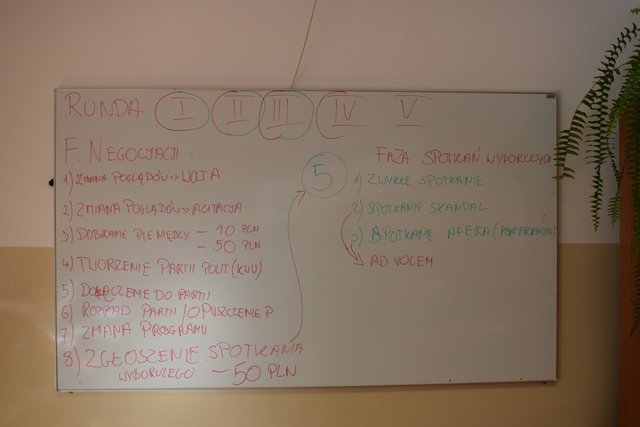 RUNDA I II III IV V
F. NEGOCJACJI
1) ZMIANA POGLĄDÓW WÓJTA
2) ZMIANA POGLĄDÓW AGITACJA
3) DOBIERANIE PIENIĘDZY - 10 PLN
- 50 PLN
4) TWORZENIE PARTII POLIT (KUU)
5) DOŁĄCZENIE DO PARTII
6) ROZPAD PARTII / OPUSZCZENIE P
7) ZMIANA PROGRAMU
8) ZGŁOSZENIE SPOTKANIA
WYBORCZEGO - 50 PLN
5
FAZA SPOTKAŃ WYBORCZYCH
1) ZWYKŁE SPOTKANIE
2) SPOTKANIE SKANDAL
3) SPOTKANIE AFERA (KONFERENCJA)
AD VOCEM